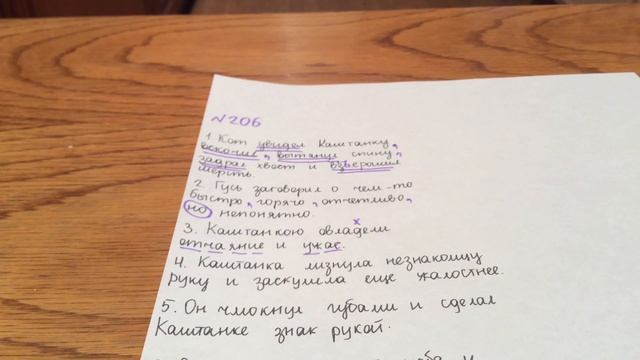 №206
1. Кот увидел Каштанку,
вскочил, вытянул спину,
задрал хвост и взъерошил
шерсть.
2. Гусь заговорил о чем-то
быстро, горячо, отчетливо,
но непонятно.
3. Каштанкою овладели
отчаяние и ужас.
4. Каштанка лизнула незнакомцу
руку и заскулила еще жалостнее.
5. Он чмокнул губами и сделал
Каштанке знак рукой.